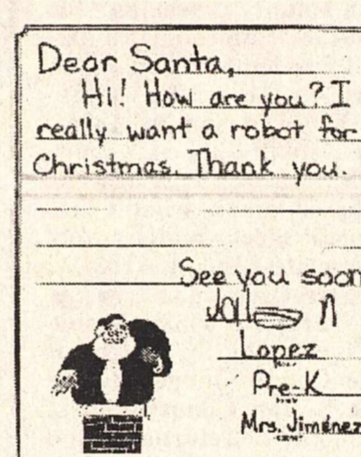 Dear Santa,
Hi! How are you? I
really want a robot for
Christmas. Thank you.
See you soon
Lopez
Pre-K
Mrs. Jiménez